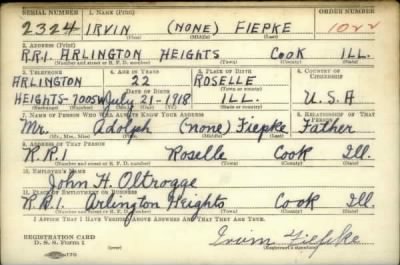 SERIAL NUMBER 1. NAME (Print) ORDER NUMBER
2324 IRVIN (NONE) FIEPKE 1022
2. ADDRESS (Print)
R.R.1. ARLINGTON HEIGHTS COOK ILL.
(Number and street or R. F. D. number) (Town) (County) (State)
3. TELEPHONE 4. AGE IN YEARS 5. PLACE OF BIRTH 6. COUNTRY OF CITIZENSHIP
ARLINGTON 22 ROSELLE
DATE OF BIRTH (Town or county)
HEIGHTS-7005W July 21-1918 ILL. U.S.A
7. NAME OF PERSON WHO WILL ALWAYS KNOW YOUR ADDRESS 8. RELATIONSHIP OF THAT PERSON
Mr. Adolph (none) Fiepke Father
(Mr., Mrs., Miss) (First) (Middle) (Last)
9. ADDRESS OF THAT PERSON
R.R.1. Roselle Cook Ill.
(Number and street or R. F. D. number) (Town) (County) (State)
10. EMPLOYER'S NAME
John H. Oltrogge
11. PLACE OF EMPLOYMENT OR BUSINESS
R.R.1. Arlington Heights Cook Ill.
(Number and street or R. F. D. number) (Town) (County) (State)
I AFFIRM THAT I HAVE VERIFIED ABOVE ANSWERS AND THAT THEY ARE TRUE.
REGISTRATION CARD
D. S. S. Form 1 Irvin Fiepke
(Registrant's signature)